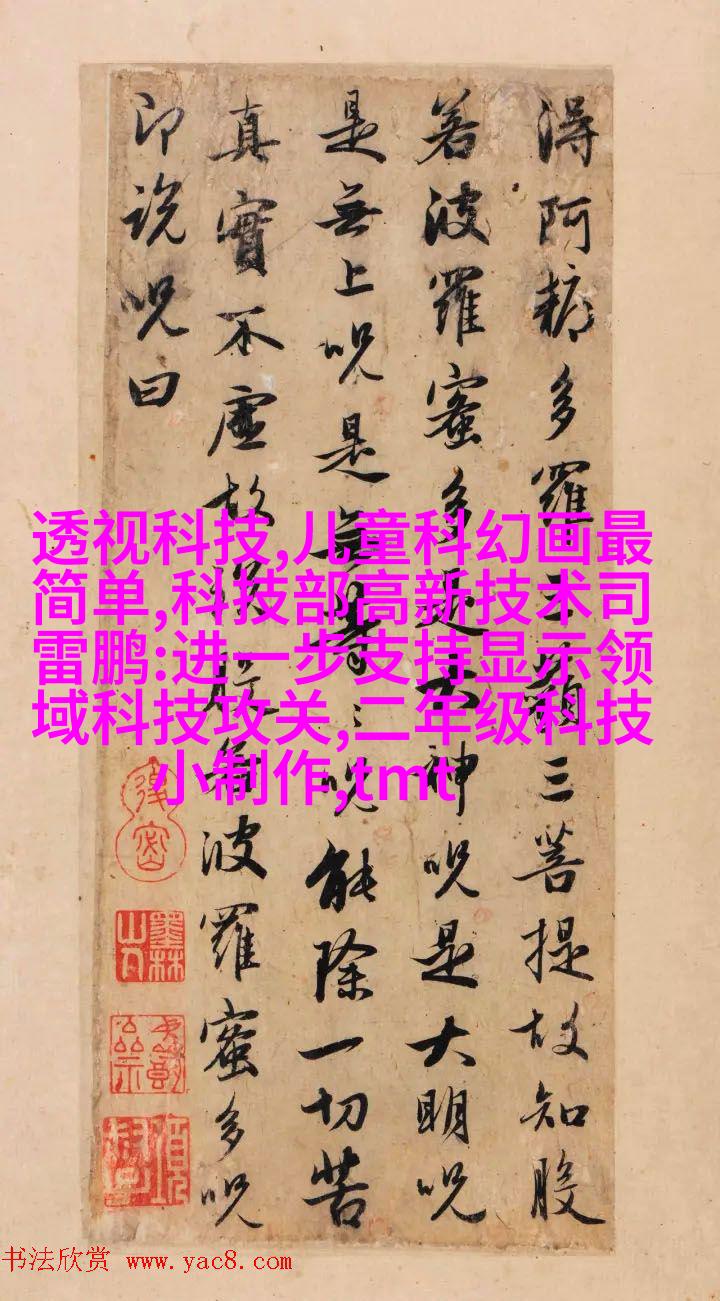 得阿耨多羅三藐三菩提故知般
若波羅蜜多是大神呪是大明呪
是無上呪是無等々呪能除一切苦
真實不虛故說般若波羅蜜多呪
即説呪曰
透视科技,儿童科幻画最
简单,科技部高新技术司
雷鹏:进一步支持显示领
域科技攻关,二年级科技
小制作,tmt
墨林山人
书法欣赏 www.yac8.com